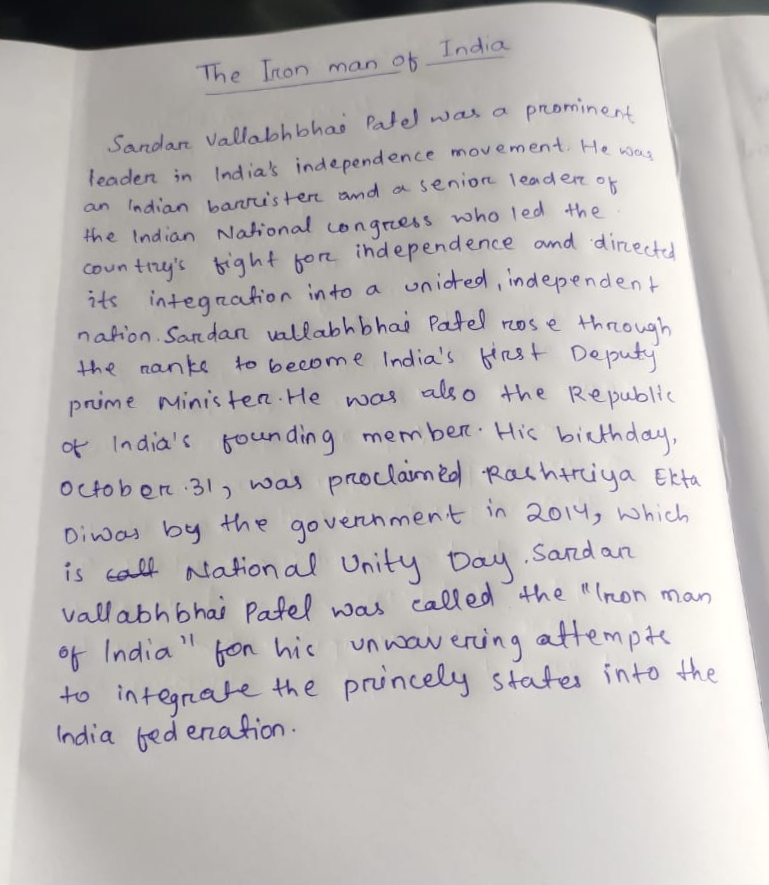 The Iron man of India
Sardar Vallabhbhai Patel was a prominent
leader in India's independence movement. He was
an Indian barrister and a senior leader of
the Indian National congress who led the
country's fight for independence and directed
its integration into a unicted, independent
nation. Sardar vallabhbhai Patel rose through
the ranks to become India's first Deputy
prime Minister. He was also the Republic
of India's founding member. His birthday,
October 31, was proclaimed Rashtriya Ekta
Diwas by the government in 2014, which
is call National Unity Day. Sardar
vallabhbhai Patel was called the "Iron man
of India" for his unwavering attempts
to integrate the princely states into the
India federation.